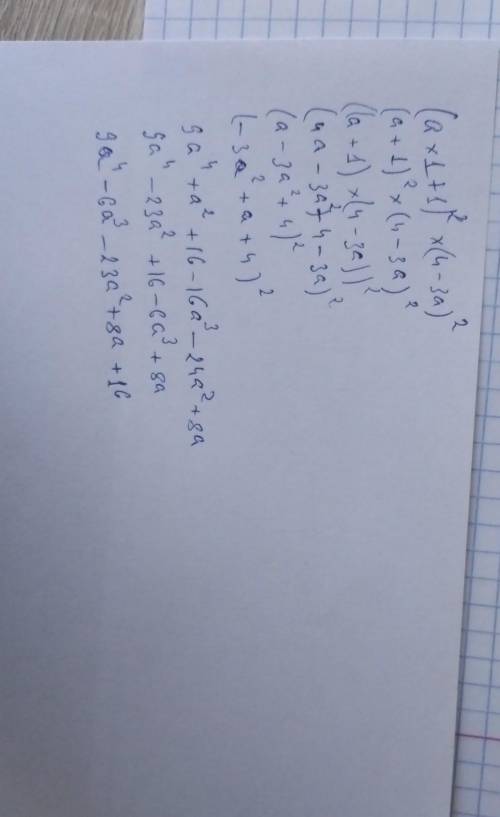 (a×1+1)² ×(4-3a)²
(a+1)² ×(4-3a)²
((a+1)×(4-3a))²
(4a-3a²+4-3a)²
(a-3a²+4)²
(-3a²+a+4)²
9a⁴+a²+16-16a³-24a²+8a
9a⁴-23a²+16-6a³+8a
9a⁴-6a³-23a²+8a+16